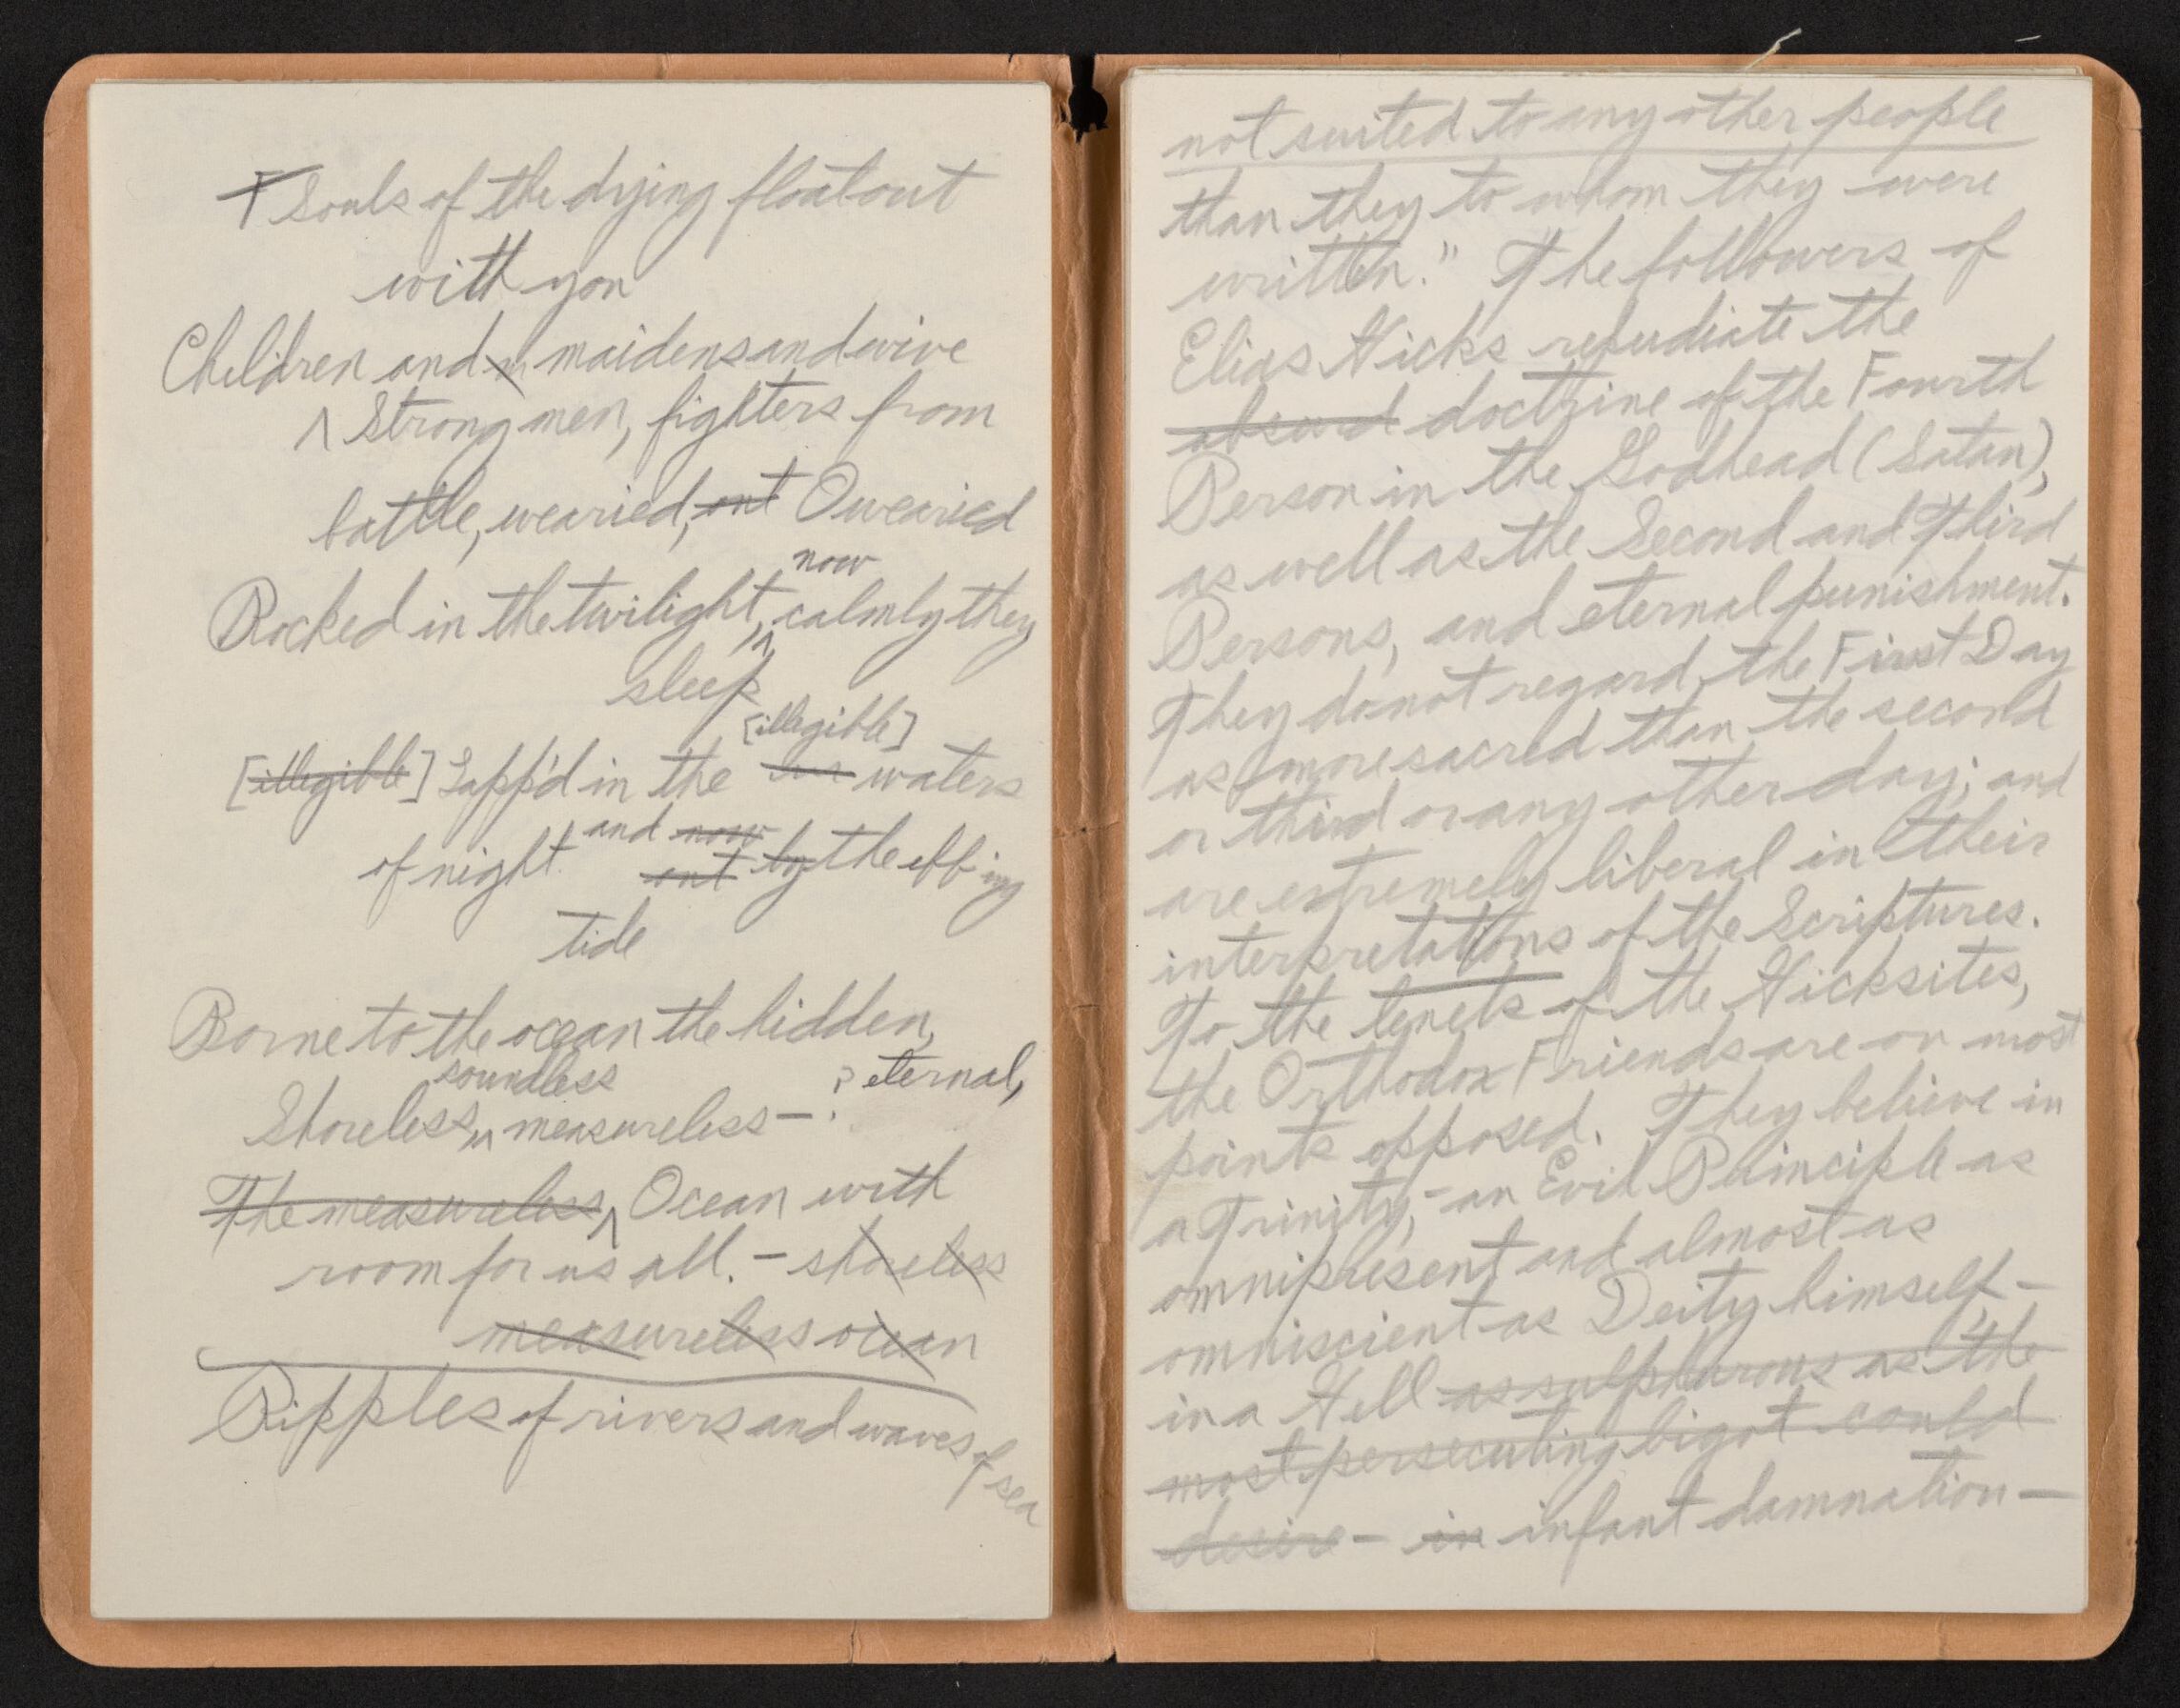 T Souls of the dying float out
with you
Children and m maidens and wive
^ Strong men, fighters from
battle, wearied, out O wearied
now
Rocked in the twilight, ^ calmly they
sleep
[illegible]
[illegible] Lapp'd in the waters
and now
of night. out by the ebb ing
tide
Borne to the ocean the hidden,
soundless ? eternal,
Shoreless, ^ measureless — :
The measureless, ^ Ocean with
room for us all. — shoreless
measureless ocean
Ripples of rivers and waves of sea
not suited to any other people
than they to whom they were
written." The followers of
Elias Hicks repudiate the
absurd doctrine of the Fourth
Person in the Godhead (Satan),
as well as the Second and Third
Persons, and eternal punishment.
They do not regard the First Day
as more sacred than the second
or third or any other day; and
are extremely liberal in their
interpretations of the Scriptures.
To the tenets of the Hicksites,
the Orthodox Friends are on most
points opposed. They believe in
a Trinity, - an Evil Principle as
omnipresent and almost as
omniscient as Deity himself, —
in a Hell as sulphurous as the
most persecuting bigot could
desire — in infant damnation —